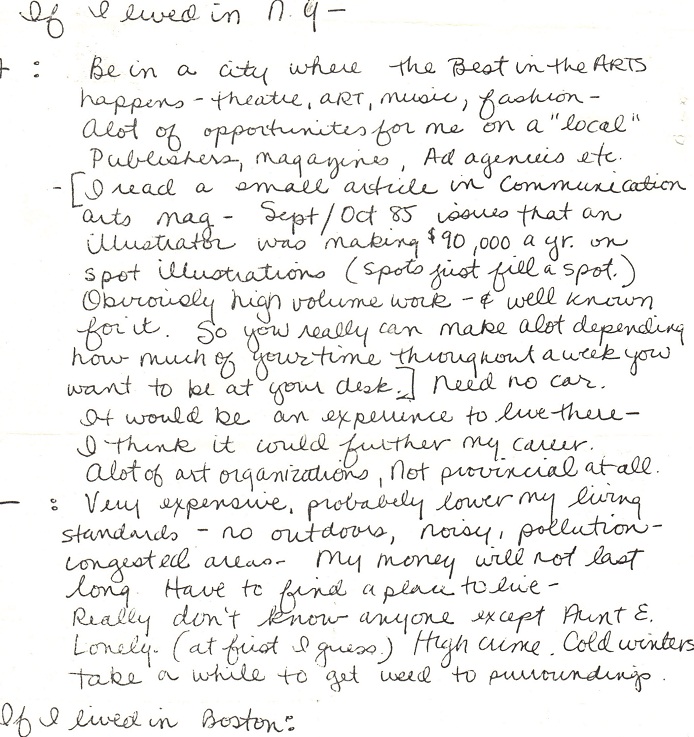 If I lived in N.Y -
+ : Be in a city where the Best in the ARTS
happens - theatre, ART, music, fashion -
Alot of opportunites for me on a "local"
Publishers, magazines, Ad agencies etc.
-[I read a small article in Communication
arts mag - Sept/Oct 85 issues that an
illustrator was making $90,000 a yr. on
spot illustrations (spots just fill a spot.)
Obviously high volume work - & well known
for it. So you really can make alot depending
how much of your time throughout a week you
want to be at your desk.] Need no car.
It would be an experience to live there -
I think it could further my career.
Alot of art organizations, Not provincial at all.
- : Very expensive, probabely lower my living
standards - no outdoors, noisy, pollution -
congested areas - My money will not last
long. Have to find a place to live -
Really don't know anyone except Aunt E.
Lonely. (at first I guess.) High crime. Cold winters
take a while to get used to surroundings.
If I lived in Boston: